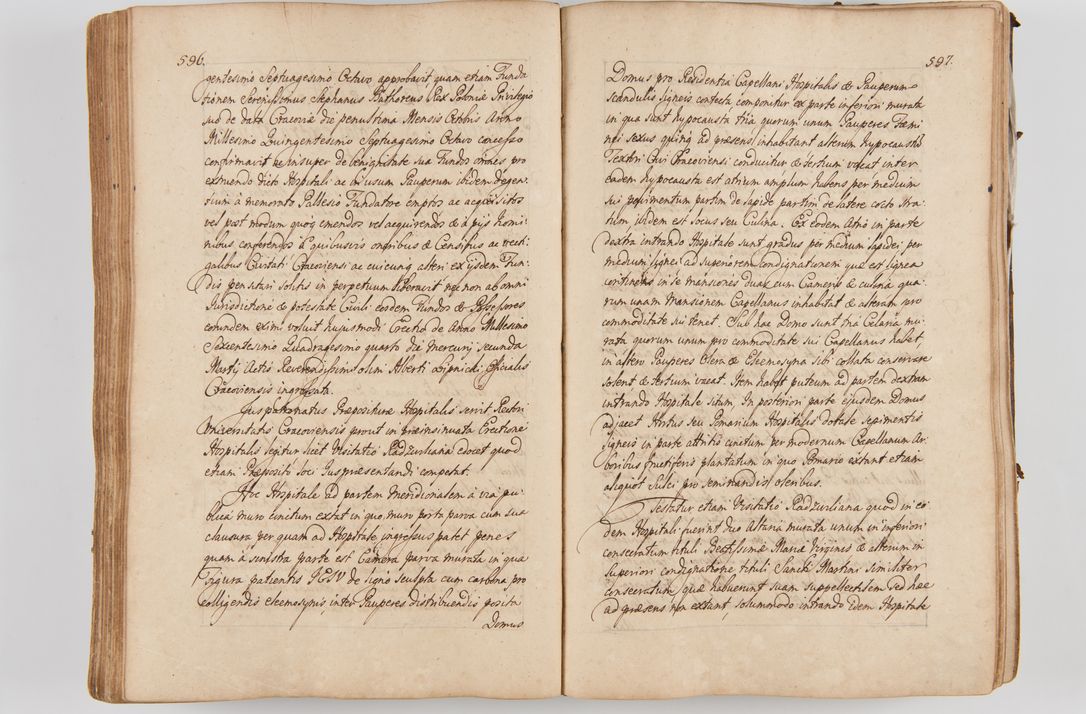 596.
gentesimo Septuagesimo Octavo approbavit quam etiam Funda
tionem Serenissimus Stephanus Bathoreus Rex Poloniæ Privilegio
suo de data Cracoviæ die penultima Mensis Octobris Anno
Millesimo Quingentesimo Septuagesimo Octavo concesso
confirmavit ac insuper de benignitate sua Fundos omnes pro
extruendo dicto Hospitali ac in usum Pauperum ibidem degen-
tium a memorato Fundatore emptos ac acquisitos
vel post modum quoq emendos vel acquirendos & à pijs homi
nibus conferendos à quibusvis oneribus & Censibus ac vecti
galibus Civitati Cracoviensi ac cuicunq alteri ex ijsdem Fun-
dis pensitari solitis in perpetuum liberavit nec non ab omni
Jurisdictione & potestate Civili eosdem Fundos & Possessores
eorundem eximi voluit hujusmodi Erectio de Anno Millesimo
Sexcentesimo Quadragesimo quarto die Mercurij secunda
Martij Actis Reverendissimi olim Alberti Lipnicki Officialis
Cracoviensis ingrossata.
Jus patronatus Præpositure Hospitalis servit Rectori
Universitatis Cracoviensis prout in præinsinuata Erectione
Hospitalis legitur licet Visitatio Radziviliana edocet quod
etiam Præposito loci Jus præsentandi competat.
Hoc Hospitale ad partem Meridionalem à via pu
blica muro cinctum extat in quo muro porta parva cum sua
clausura per quam ad Hospitale ingressus patet penes
quam à sinistra parte est Camera parva murata in qua
Figura patientis JESU de ligno sculpta cum carbona pro
colligendis eleemosynis inter Pauperes distribuendis posita
Domus
597.
Domus pro Residentia Capellani Hospitalis & Pauperum
scandulis ligneis contecta componitur ex parte inferiori murata
in qua sunt hypocausta tria quorum unum Pauperes Fæmi
nei sexus quinq ad præsens inhabitant alterum hypocaustum
Textori Civi Cracoviensi conducitur & tertium vacat inter
eadem hypocausta est atrium amplum habens per medium
sui pavimentum partim de lapide partim de latere cocto stra
tum ibidem est focus seu Culina. Ex eodem Atrio in parte
dextra intrando Hospitale sunt gradus per medium lapidei per
medium lignei ad superiorem condignationem quæ est lignea
continens in se mansiones duas cum Cameris & culina qua-
rum unam Mansionem Capellanus inhabitat & alteram pro
commoditate sui tenet. Sub hac Domo sunt tria Celaria mu
rata quorum unum pro commoditate sui Capellanus habet
in altero Pauperes Olera & Eleemosyna sibi collata conservare
solent & tertium vacat. Item habet puteum ad partem dextram
intrando Hospitale situm. In posteriori parte ejusdem Domus
adjacet Hortus seu Pomarium Hospitalis dotale sepimentis
ligneis in parte attritis cinctum per modernum Capellanum Ar
boribus fructiferis plantatum in quo Pomario extant etiam
aliquot sulci pro seminandis oleribus.
Testatur etiam Visitatio Radziviliana quod in eo
dem Hospitali fuerint duo Altaria murata unum in inferiori
consecratum tituli Beatissimæ Mariæ Virginis & alterum in
superiori condignatione tituli Sancti Martini similiter
consecratum quæ habuerunt suam suppellectilem sed hæc
ad præsens non extant, solummodo intrando idem Hospitale